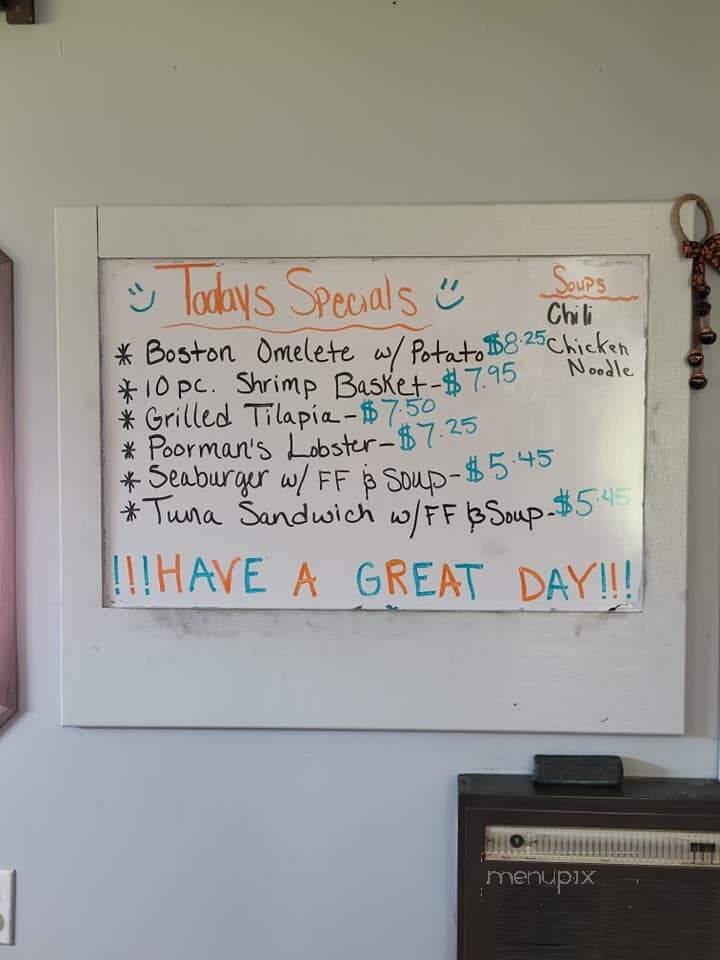 Todays Specials
* Boston Omelete w/ Potato $8.25
* 10 pc. Shrimp Basket - $7.95
* Grilled Tilapia - $7.50
* Poorman's Lobster - $7.25
* Seaburger w/ FF & Soup - $5.45
* Tuna Sandwich w/ FF & Soup - $5.45
!!!HAVE A GREAT DAY!!!
Soups
Chili
Chicken
Noodle
menupix